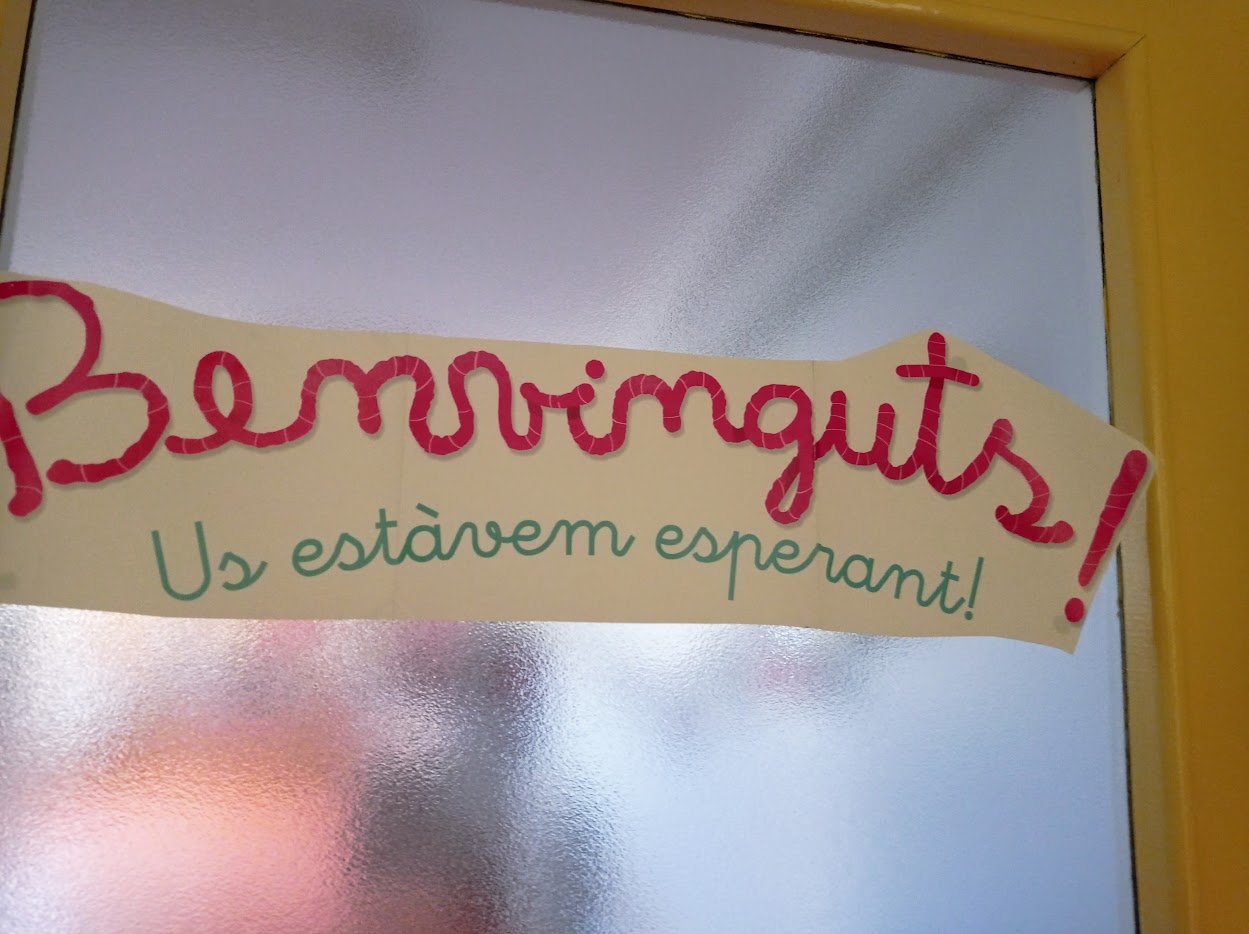 Benvinguts!
Us estàvem esperant!